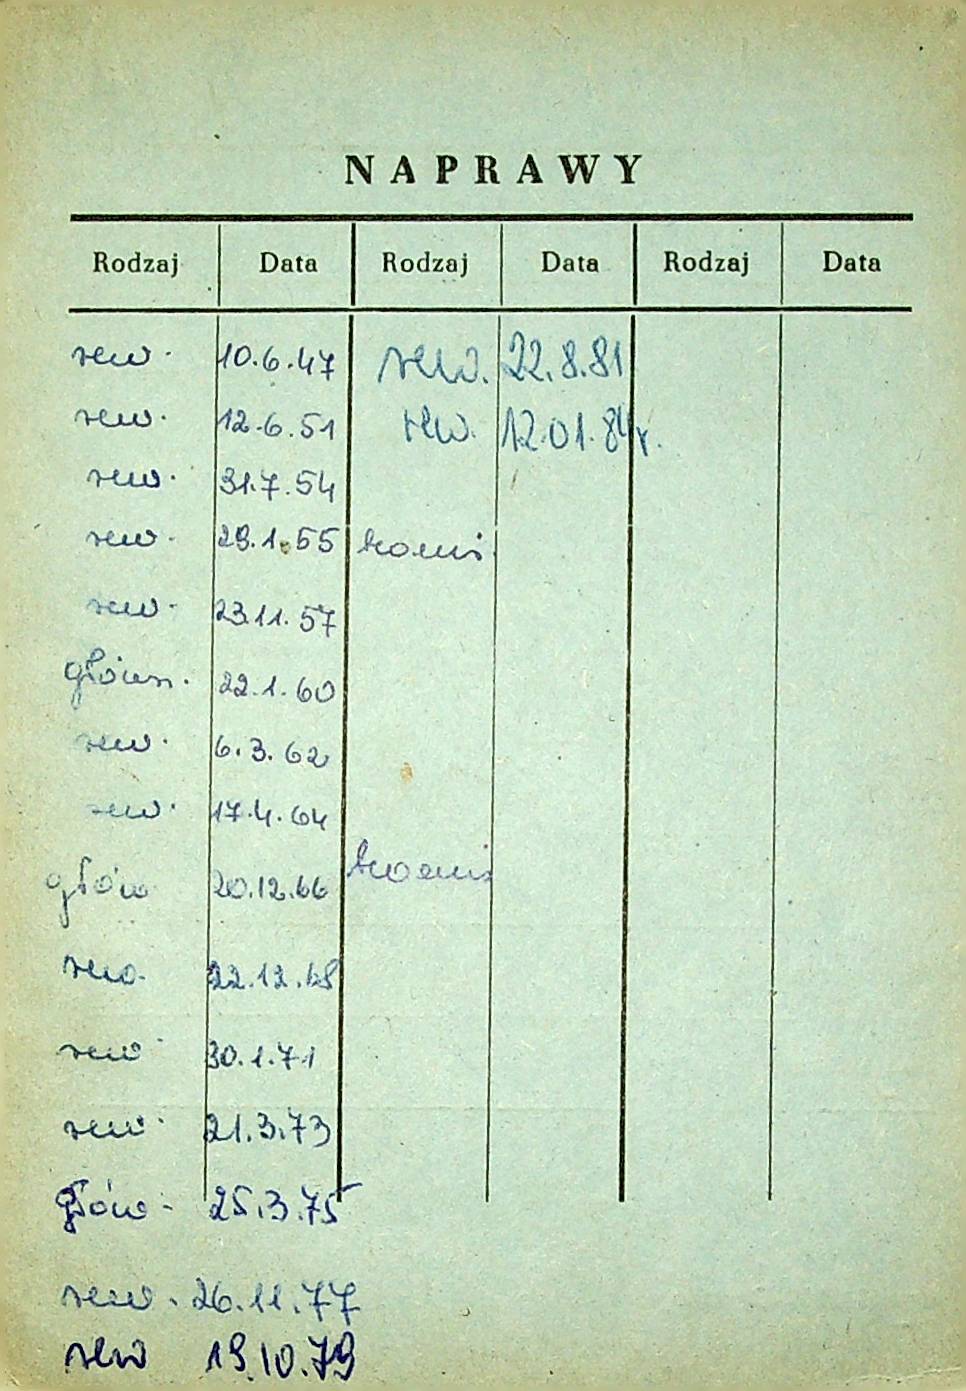 NAPRAWY
Rodzaj Data Rodzaj Data Rodzaj Data
rew. 10.6.47 rew. 22.8.81
rew. 12.6.51 rew. 12.01.84r.
rew. 31.7.54
rew. 29.1.55
rew. 23.11.57
główn. 22.1.60
rew. 6.3.62
rew. 17.4.64
głów 20.12.66
rew. 22.12.68
rew. 30.1.71
rew. 21.3.73
głów. 25.3.75
rew. 26.11.77
rew 19.10.79